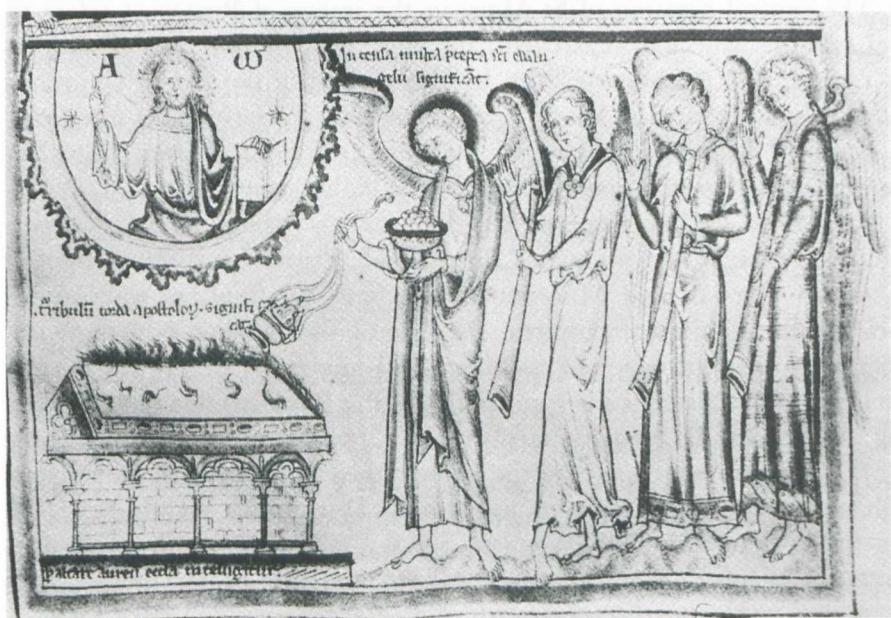 A ω
Incensa multa p̄cepta sc̄i euan-
gelii significāt.
t᷑ribulū corda apostoloꝝ. signifi
cat
altare aureū eccl̄a intelligitur.